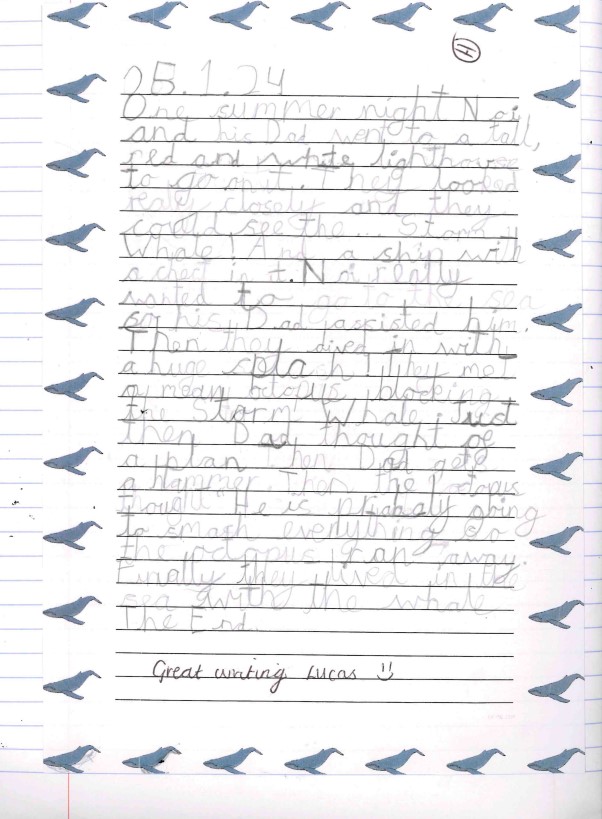 H
25.1.24
One summer night Noi
and his Dad went to a tall,
red and white lighthouse
to go in it. They looked
realy closely and they
could see the... Storm
Whale! And a ship with
a chest in it. Noi really
wanted to go to the sea
so his Dad assisted him.
Then they dived in with
a huge splash! They met
a mean octopus blocking
the Storm Whale. Just
then Dad thought of
a plan. Then Dad gets
a hammer. Then the octopus
thought He is probably going
to smash everything so
the octopus ran away.
Finally they lived in the
sea with the whale
The End.
Great writing Lucas